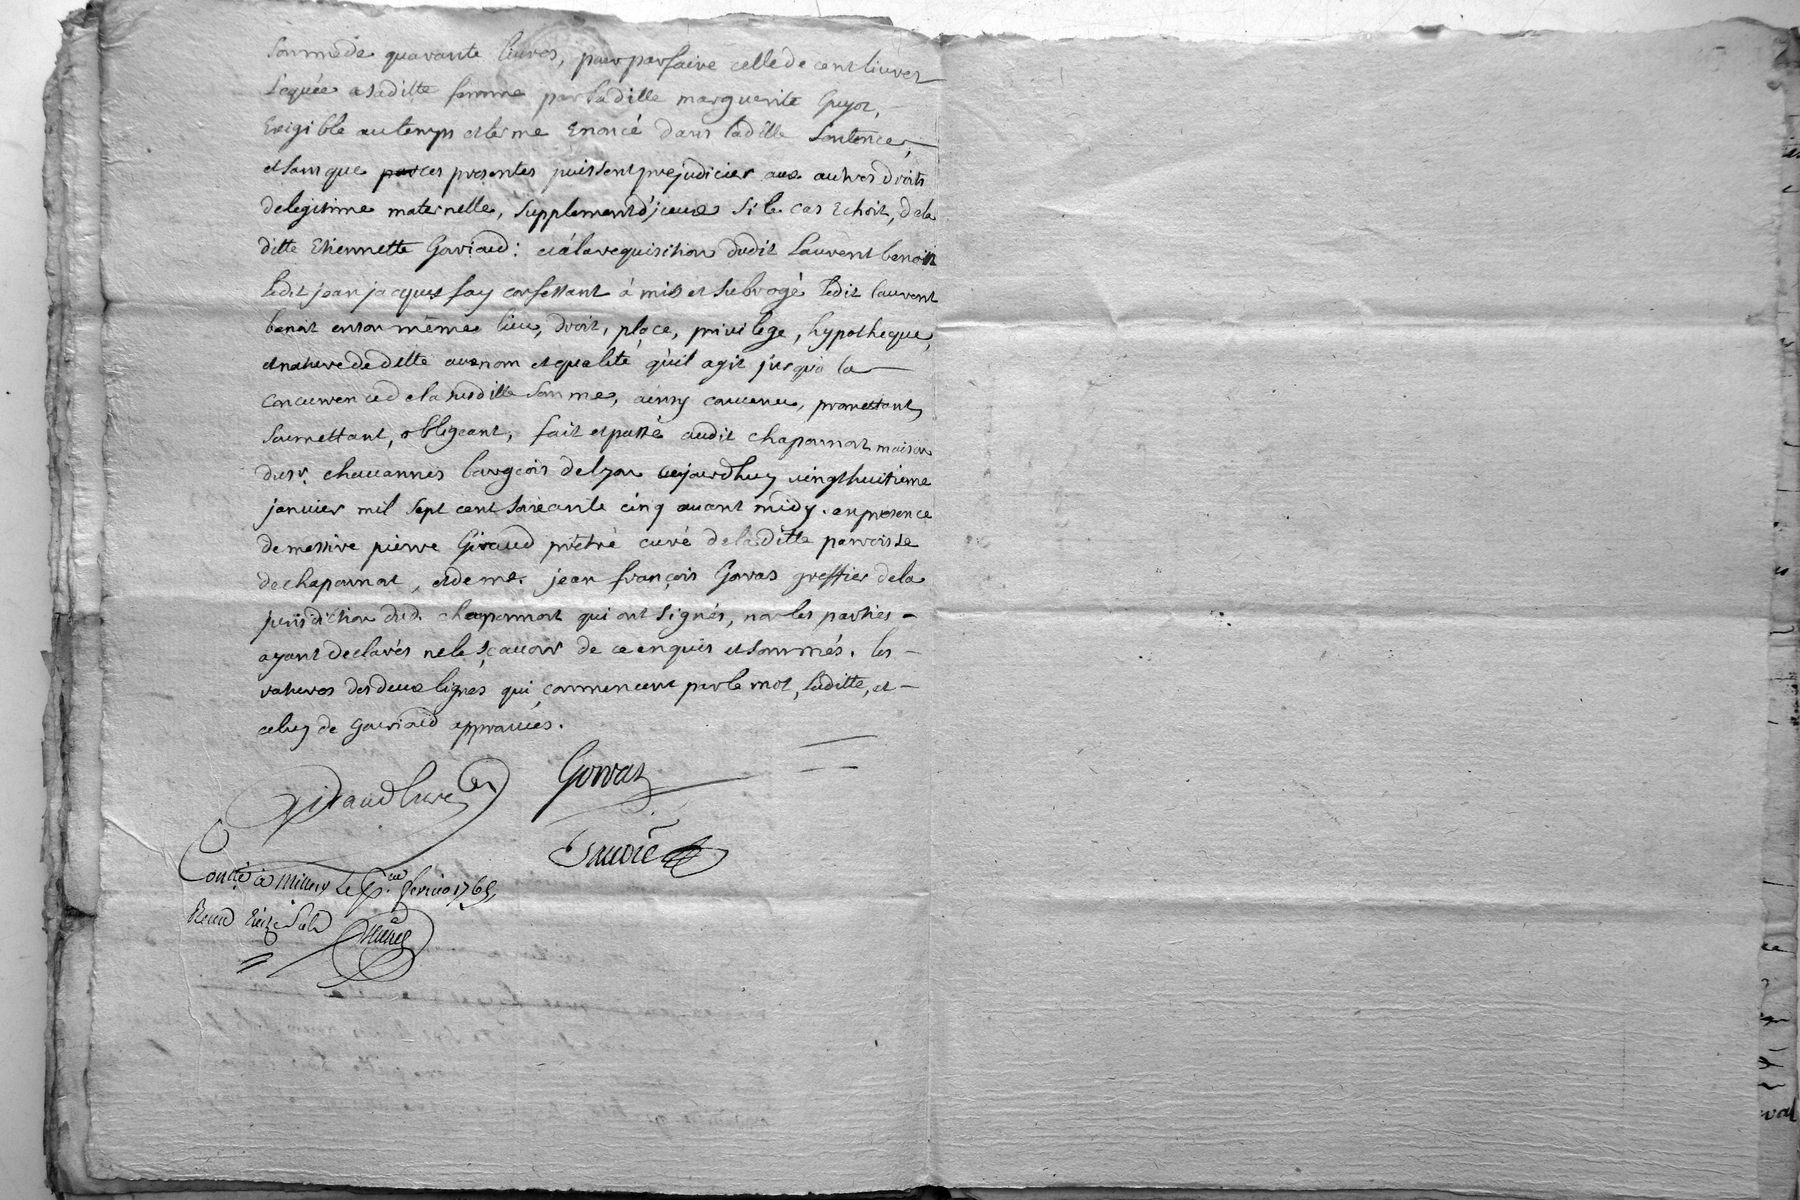 somme de quarante livres, pour parfaire celle de cent livres
leguée a sa ditte femme par la ditte marguerite Guyot,
Exigible au temps et terme Enoncé dans la ditte Sentence,
et sans que par ces presentes puissent prejudicier aux autres droits
de legitime maternelle, supplement d'jceux si le cas Echoit, de la
ditte Etiennette Goriaud: et à la requisition dudit Laurent benoit
ledit jean jacques fay confessant à mis et subrogé ledit laurent
benoit en son même lieu, droit, place, privilege, hypotheque,
et nature de dette aux nom et qualité qu'il agit jusqu'a la
concurrence de la susditte somme, ainsy convenu, promettant,
soumettant, obligeant, fait et passé audit chaponnost maison
du sr. chavannes bourgeois de lyon aujourdhuy vingt huitieme
janvier mil sept cent soixante cinq avant midy. en presence
de messire pierre Giraud prêtre curé de la ditte parroisse
de chaponnost, et de me. jean françois Gorras greffier de la
jurisdiction dud. chaponnost qui ont signés, non les parties
ayant declarés ne le sçavoir de ce enquis et sommés. les
ratures des deux lignes qui commencent par le mot, laditte, et
celuy de goriaud approuvées.
Giraud curé Gorras
Conllé à Millery le fevrier 1765
Receu treize sols